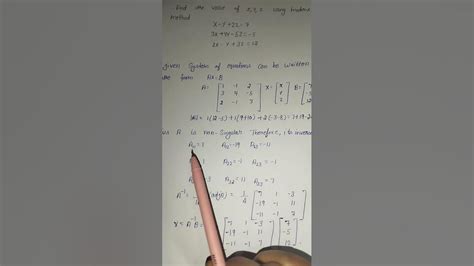 Find the value of x,y,z using
method
x - y + 2z = 7
3x + 4y - 5z = -5
2x - y + 3z = 12
given System of equations can be written
the form AX = B
A = [1 -1 2 X = [x B = [7
3 4 -5 y -5
2 -1 3] z]
|A| = 1(12-5)+1(9+10)+2(-3-8) = 7+19-2
A is non-Singular Therefore, its
A₁₁ = 7 A₁₂ = -19 A₁₃ = -11
1 A₂₂ = -1 A₂₃ = -1
A₃₂ = 11 A₃₃ = 7
A⁻¹ = (adjA) = 1/4 [7 1 -3
-19 -1 11
-11 -1 7]
X = A⁻¹B = [7 1 -3 [7
-19 -1 11 -5
-11 -1 7] 12]